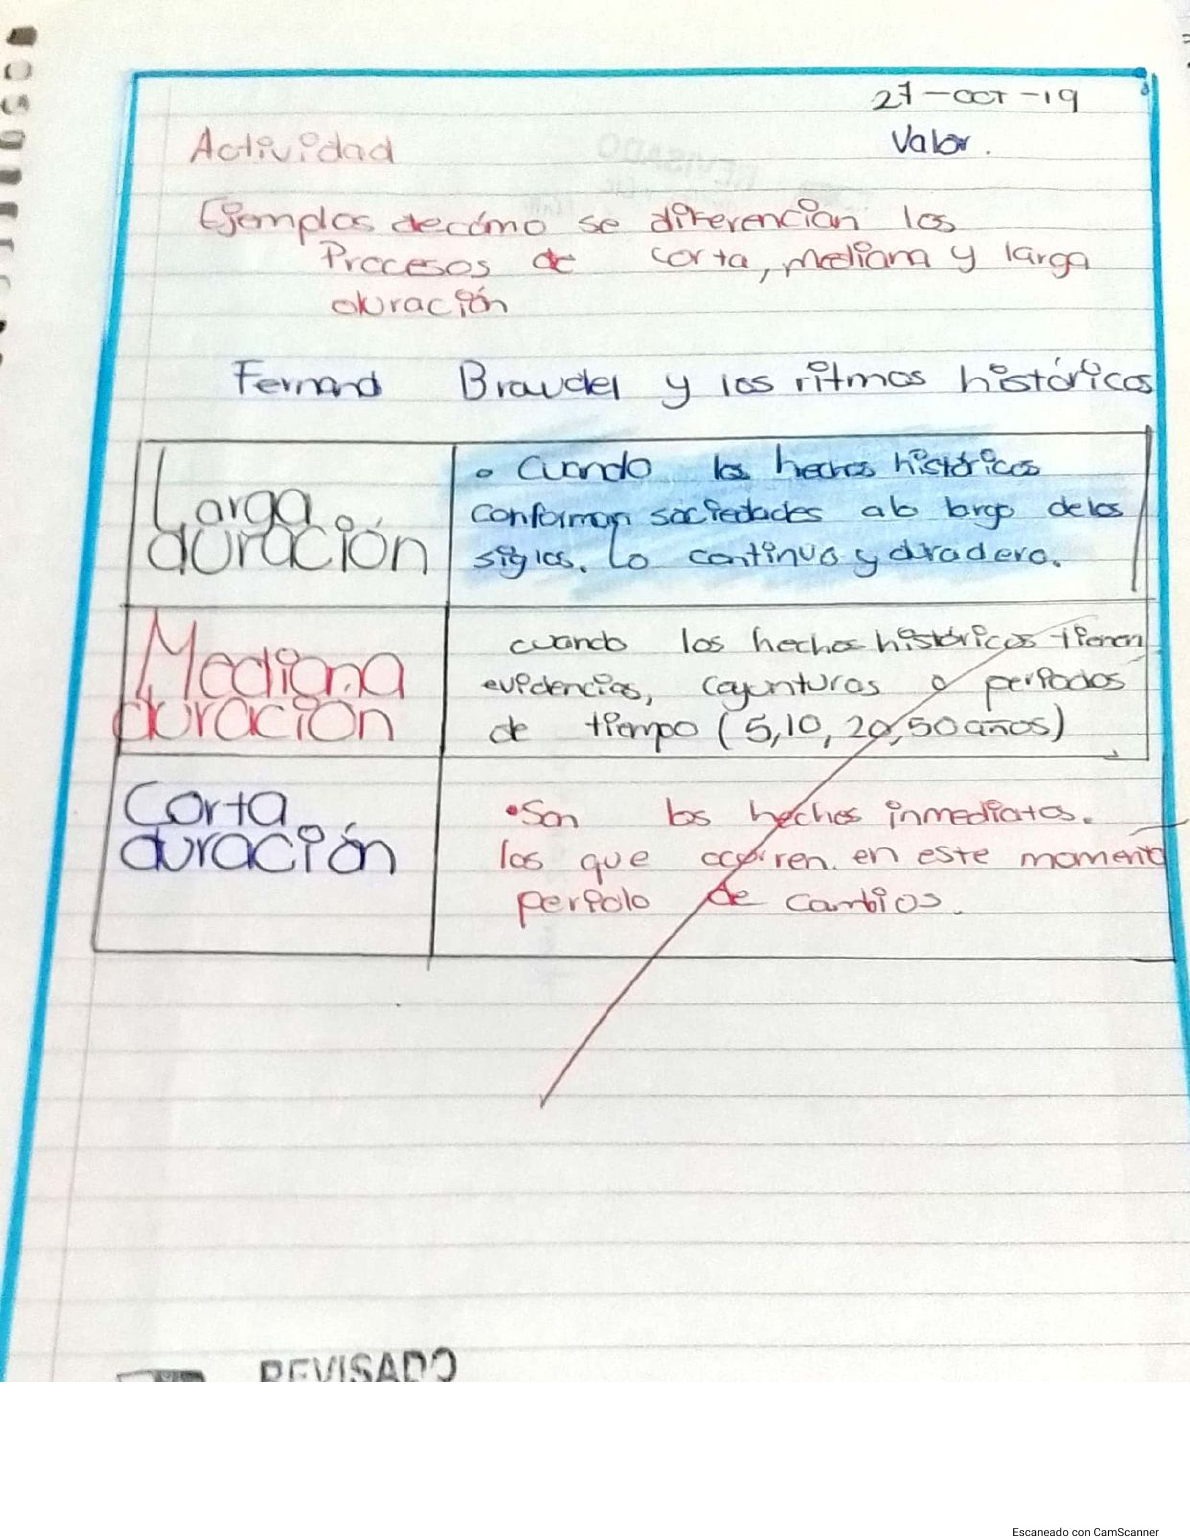 27-OCT-19
Actividad
Valor.
Ejemplos de cómo se diferencian los
Procesos de corta, mediana y larga
duración
Fernand Braudel y los ritmos históricos
Larga
duración
• Cuando los hechos históricos
conforman sociedades a lo largo de los
siglos. Lo continuo y duradero.
Mediana
duración
cuando los hechos históricos tienen
evidencias, coyunturas o periodos
de tiempo (5,10, 20,50 años)
Corta
duración
• Son los hechos inmediatos.
los que ocurren en este momento
de cambios.
REVISADO
REVISADO
Escaneado con CamScanner